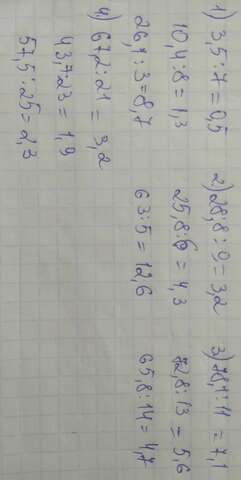 1) 3,5:7=0,5
10,4:8=1,3
26,1:3=8,7
2) 28,8:9=3,2
25,8:6=4,3
63:5=12,6
3) 78,1:11=7,1
72,8:13=5,6
65,8:14=4,7
4) 67,2:21=3,2
43,7:23=1,9
57,5:25=2,3